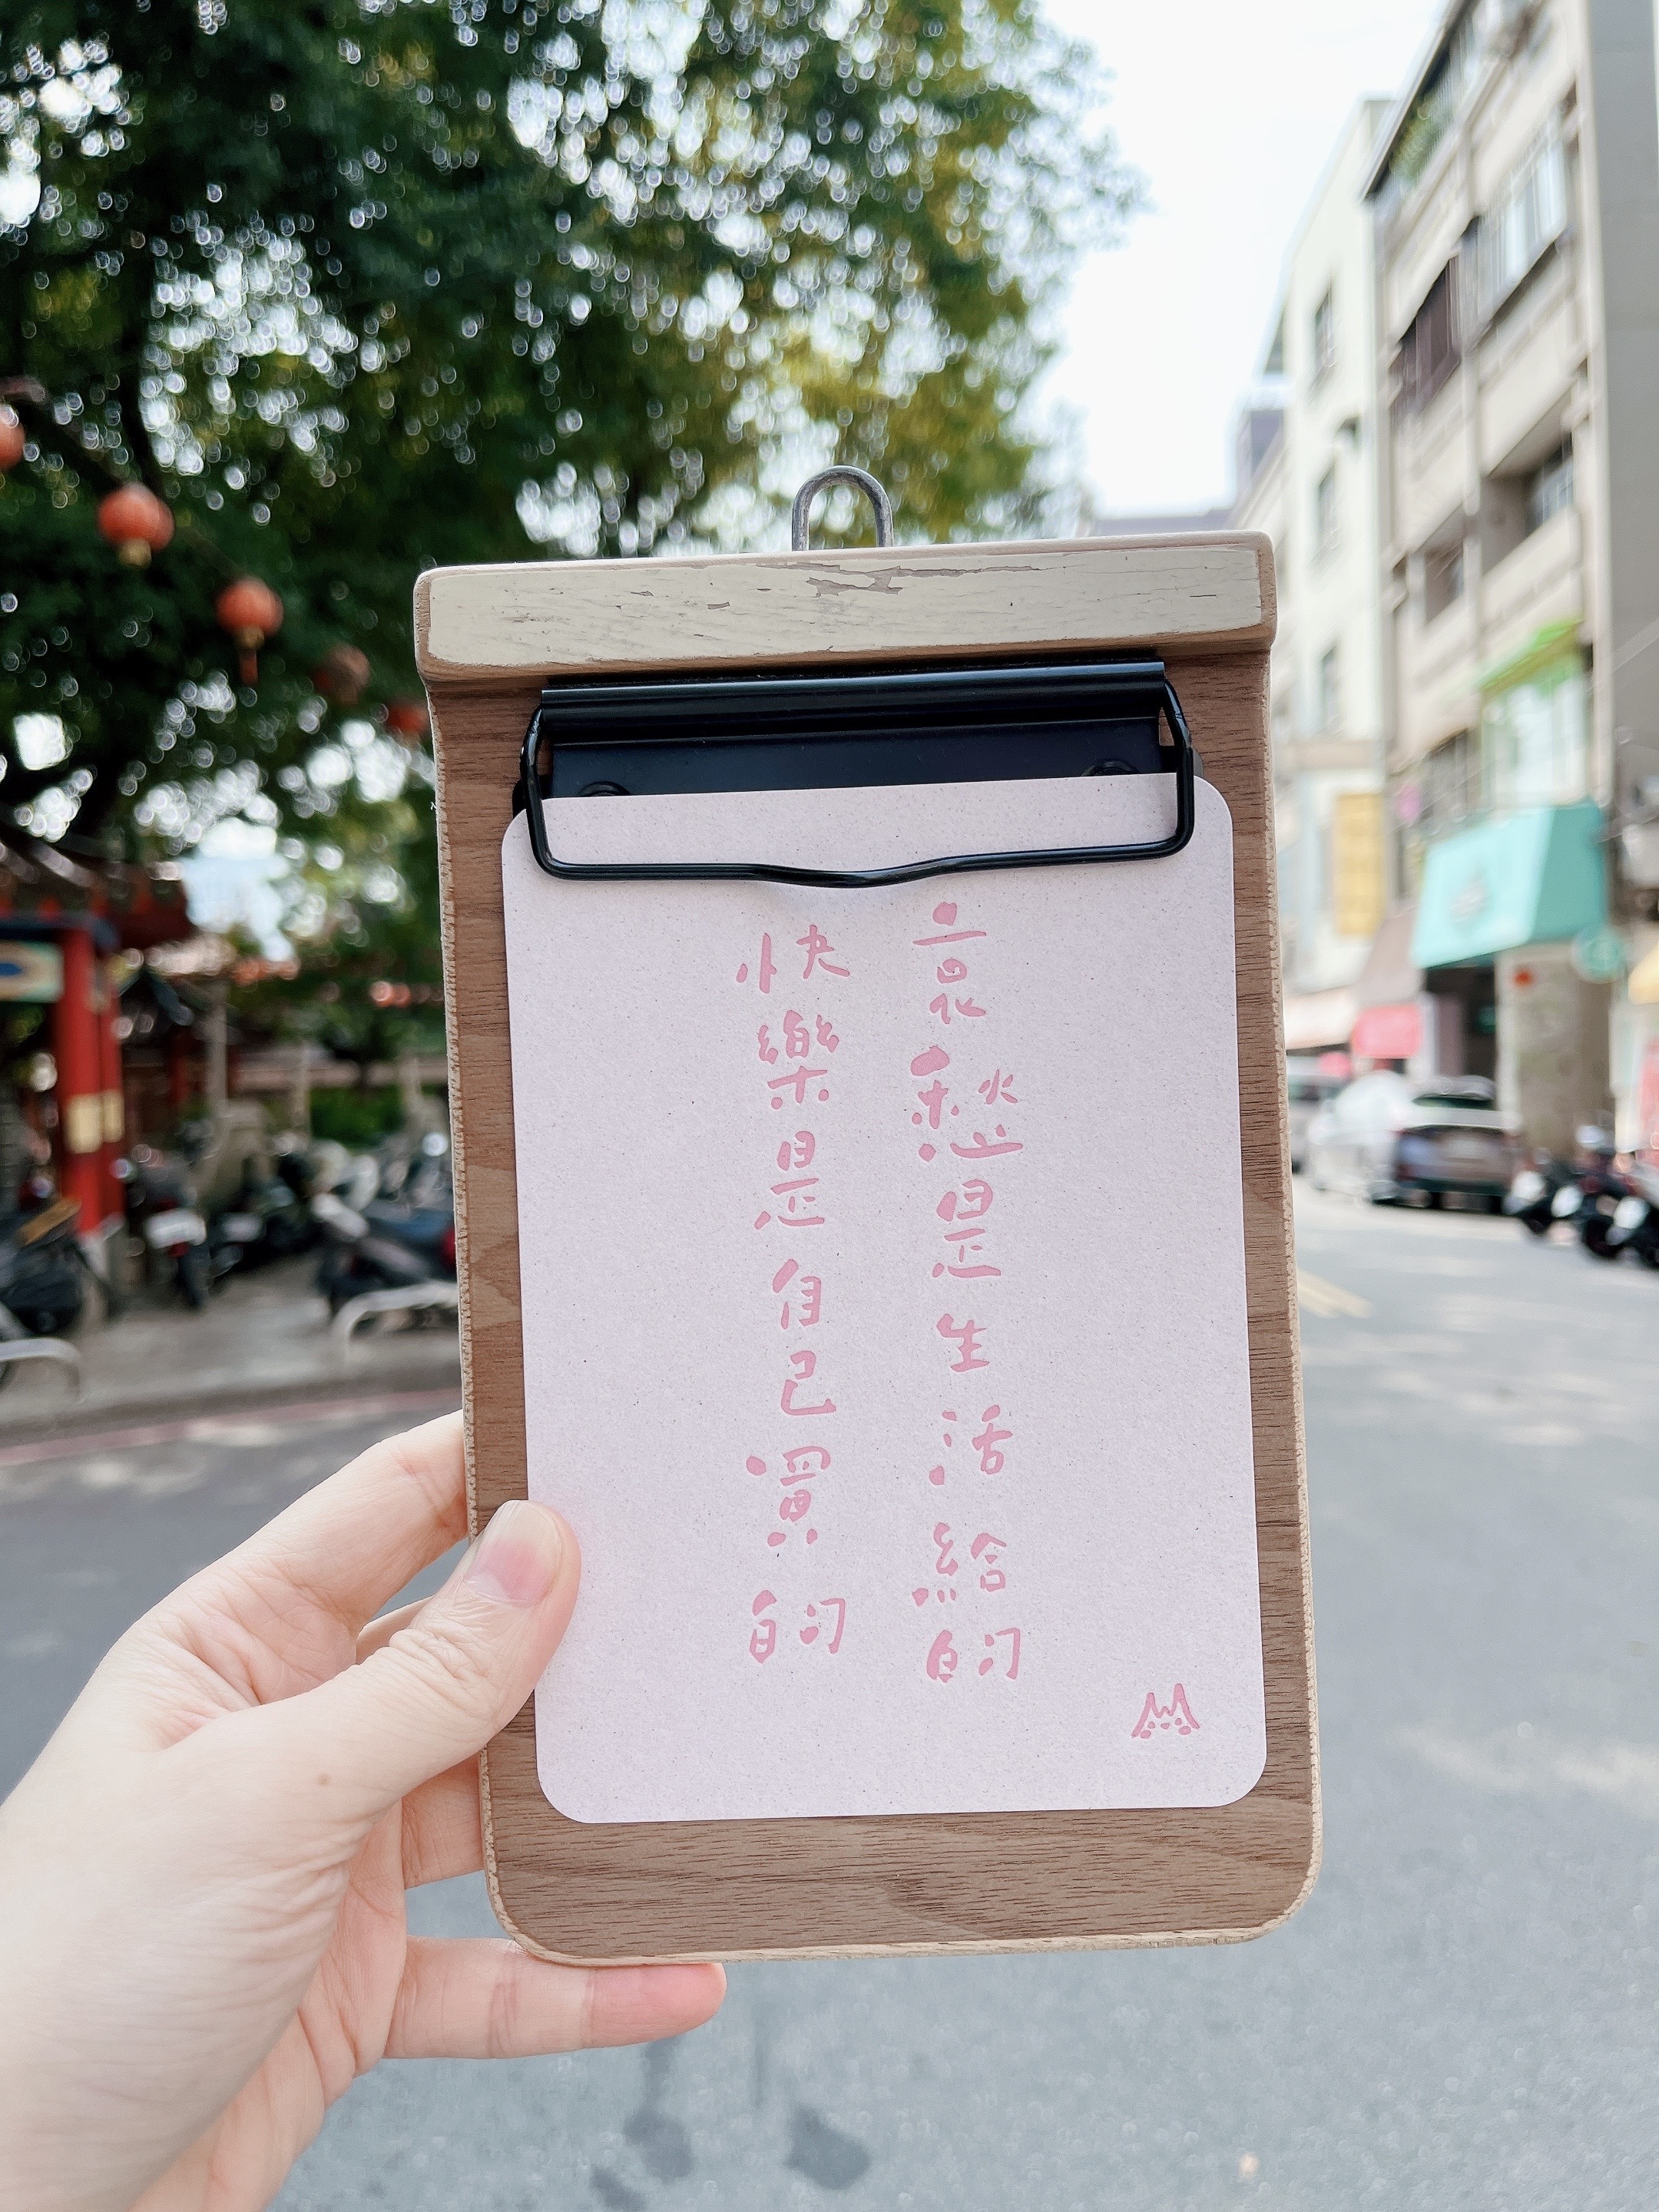 哀愁是生活給的
快樂是自己買的